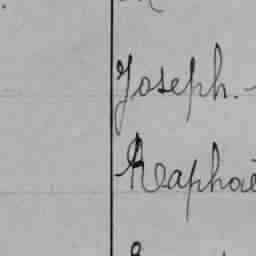 Joseph. -
Raphaë